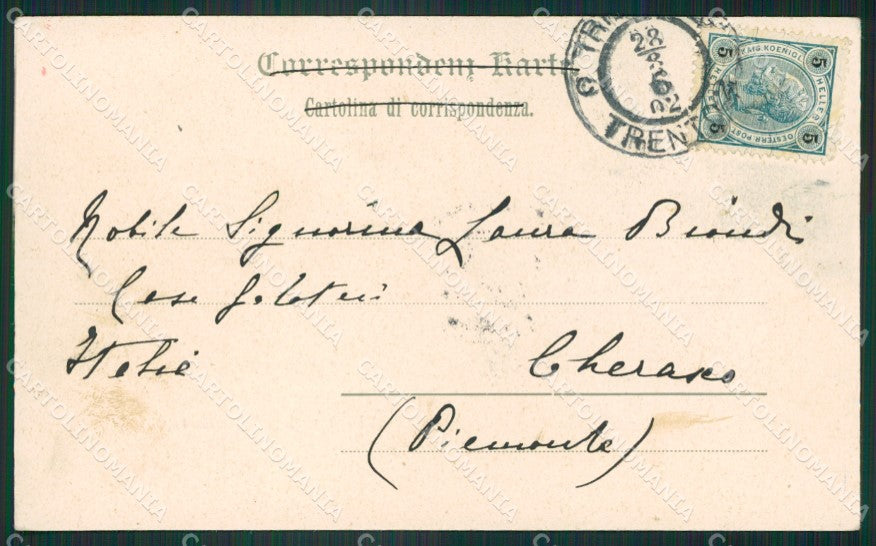 Correspondenz Karte
Cartolina di corrispondenza.
TRIENT
28
02
TRENTO
5 5
KAIS. KOENIGL.
HELLER
OESTERR. POST
5 5
Nobile Signorina Laura Biondi
Casa Galateri
Italie Cherasco
(Piemonte)
CARTOLINOMANIA